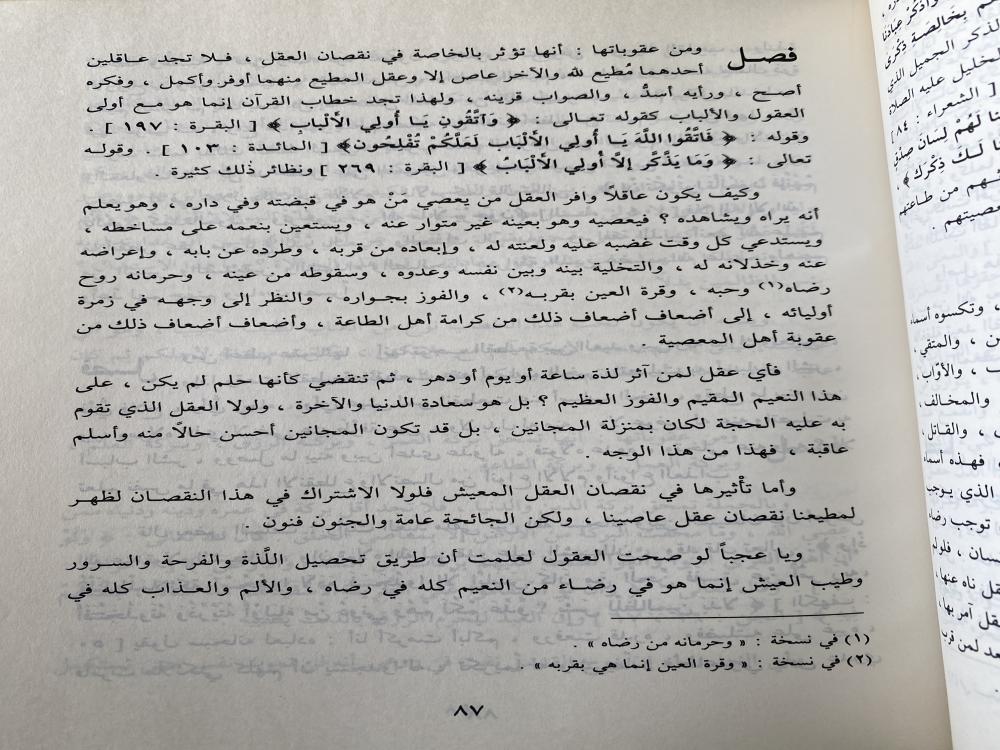 فصل ومن عقوباتها : أنها تؤثر بالخاصة في نقصان العقل ، فلا تجد عاقلين
أحدهما مُطيع لله والآخر عاص إلا وعقل المطيع منهما أوفر وأكمل ، وفكره
أصح ، ورأيه أسدُّ ، والصواب قرينه ، ولهذا تجد خطاب القرآن إنما هو مع أولى
العقول والألباب كقوله تعالى : ﴿ وَاتَّقُونِ يَا أُولِي الْأَلْبابِ ﴾ [ البقرة : ١٩٧ ] .
وقوله : ﴿ فَاتَّقُوا اللَّهَ يَا أُولِي الْأَلْبَابِ لَعَلَّكُمْ تُفْلِحُون﴾ [ المائدة : ١٠٣ ] . وقوله
تعالى : ﴿ وَمَا يَذَّكَّر إلاَّ أُولِي الْأَلْبَابُ ﴾ [ البقرة : ٢٦٩ ] ونظائر ذلك كثيرة .
وكيف يكون عاقلاً وافر العقل من يعصي مَنْ هو في قبضته وفي داره ، وهو يعلم
أنه يراه ويشاهده ؟ فيعصيه وهو بعينه غير متوار عنه ، ويستعين بنعمه على مساخطه ،
ويستدعي كل وقت غضبه عليه ولعنته له ، وإبعاده من قربه ، وطرده عن بابه ، وإعراضه
عنه وخذلانه له ، والتخلية بينه وبين نفسه وعدوه ، وسقوطه من عينه ، وحرمانه روح
رضاه(١) وحبه ، وقرة العين بقربه(٢) ، والفوز بجواره ، والنظر إلى وجهه في زمرة
أوليائه ، إلى أضعاف أضعاف ذلك من كرامة أهل الطاعة ، وأضعاف أضعاف ذلك من
عقوبة أهل المعصية .
فأي عقل لمن آثر لذة ساعة أو يوم أو دهر ، ثم تنقضي كأنها حلم لم يكن ، على
هذا النعيم المقيم والفوز العظيم ؟ بل هو سعادة الدنيا والآخرة ، ولولا العقل الذي تقوم
به عليه الحجة لكان بمنزلة المجانين ، بل قد تكون المجانين أحسن حالاً منه وأسلم
عاقبة ، فهذا من هذا الوجه .
وأما تأْثيرها في نقصان العقل المعيش فلولا الاشتراك في هذا النقصان لظهر
لمطيعنا نقصان عقل عاصينا ، ولكن الجائحة عامة والجنون فنون .
ويا عجباً لو صحت العقول لعلمت أن طريق تحصيل اللَّذة والفرحة والسرور
وطيب العيش إنما هو في رضاء من النعيم كله في رضاه ، والألم والعذاب كله في
(١) في نسخة : « وحرمانه من رضاه » .
(٢) في نسخة : « وقرة العين إنما هي بقربه » .
٨٧
بِخَالِصَةٍ ذِكْرَى
الذكر الجميل الذي
الخليل عليه الصلاة
[ الشعراء : ٨٤ ]
لَهُمْ لِسَانَ صِدْقٍ
لَكَ ذِكْرَك﴾ .
من طاعتهم
وتكسوه أسماء
والمتقي ،
والأوَّاب ،
والمخالف ،
والقاتل ،
فهذه أسماء
الذي يوجب
توجب رضاه
فلولم
ناه عنها ،
آمر بها ،
لمن قرب